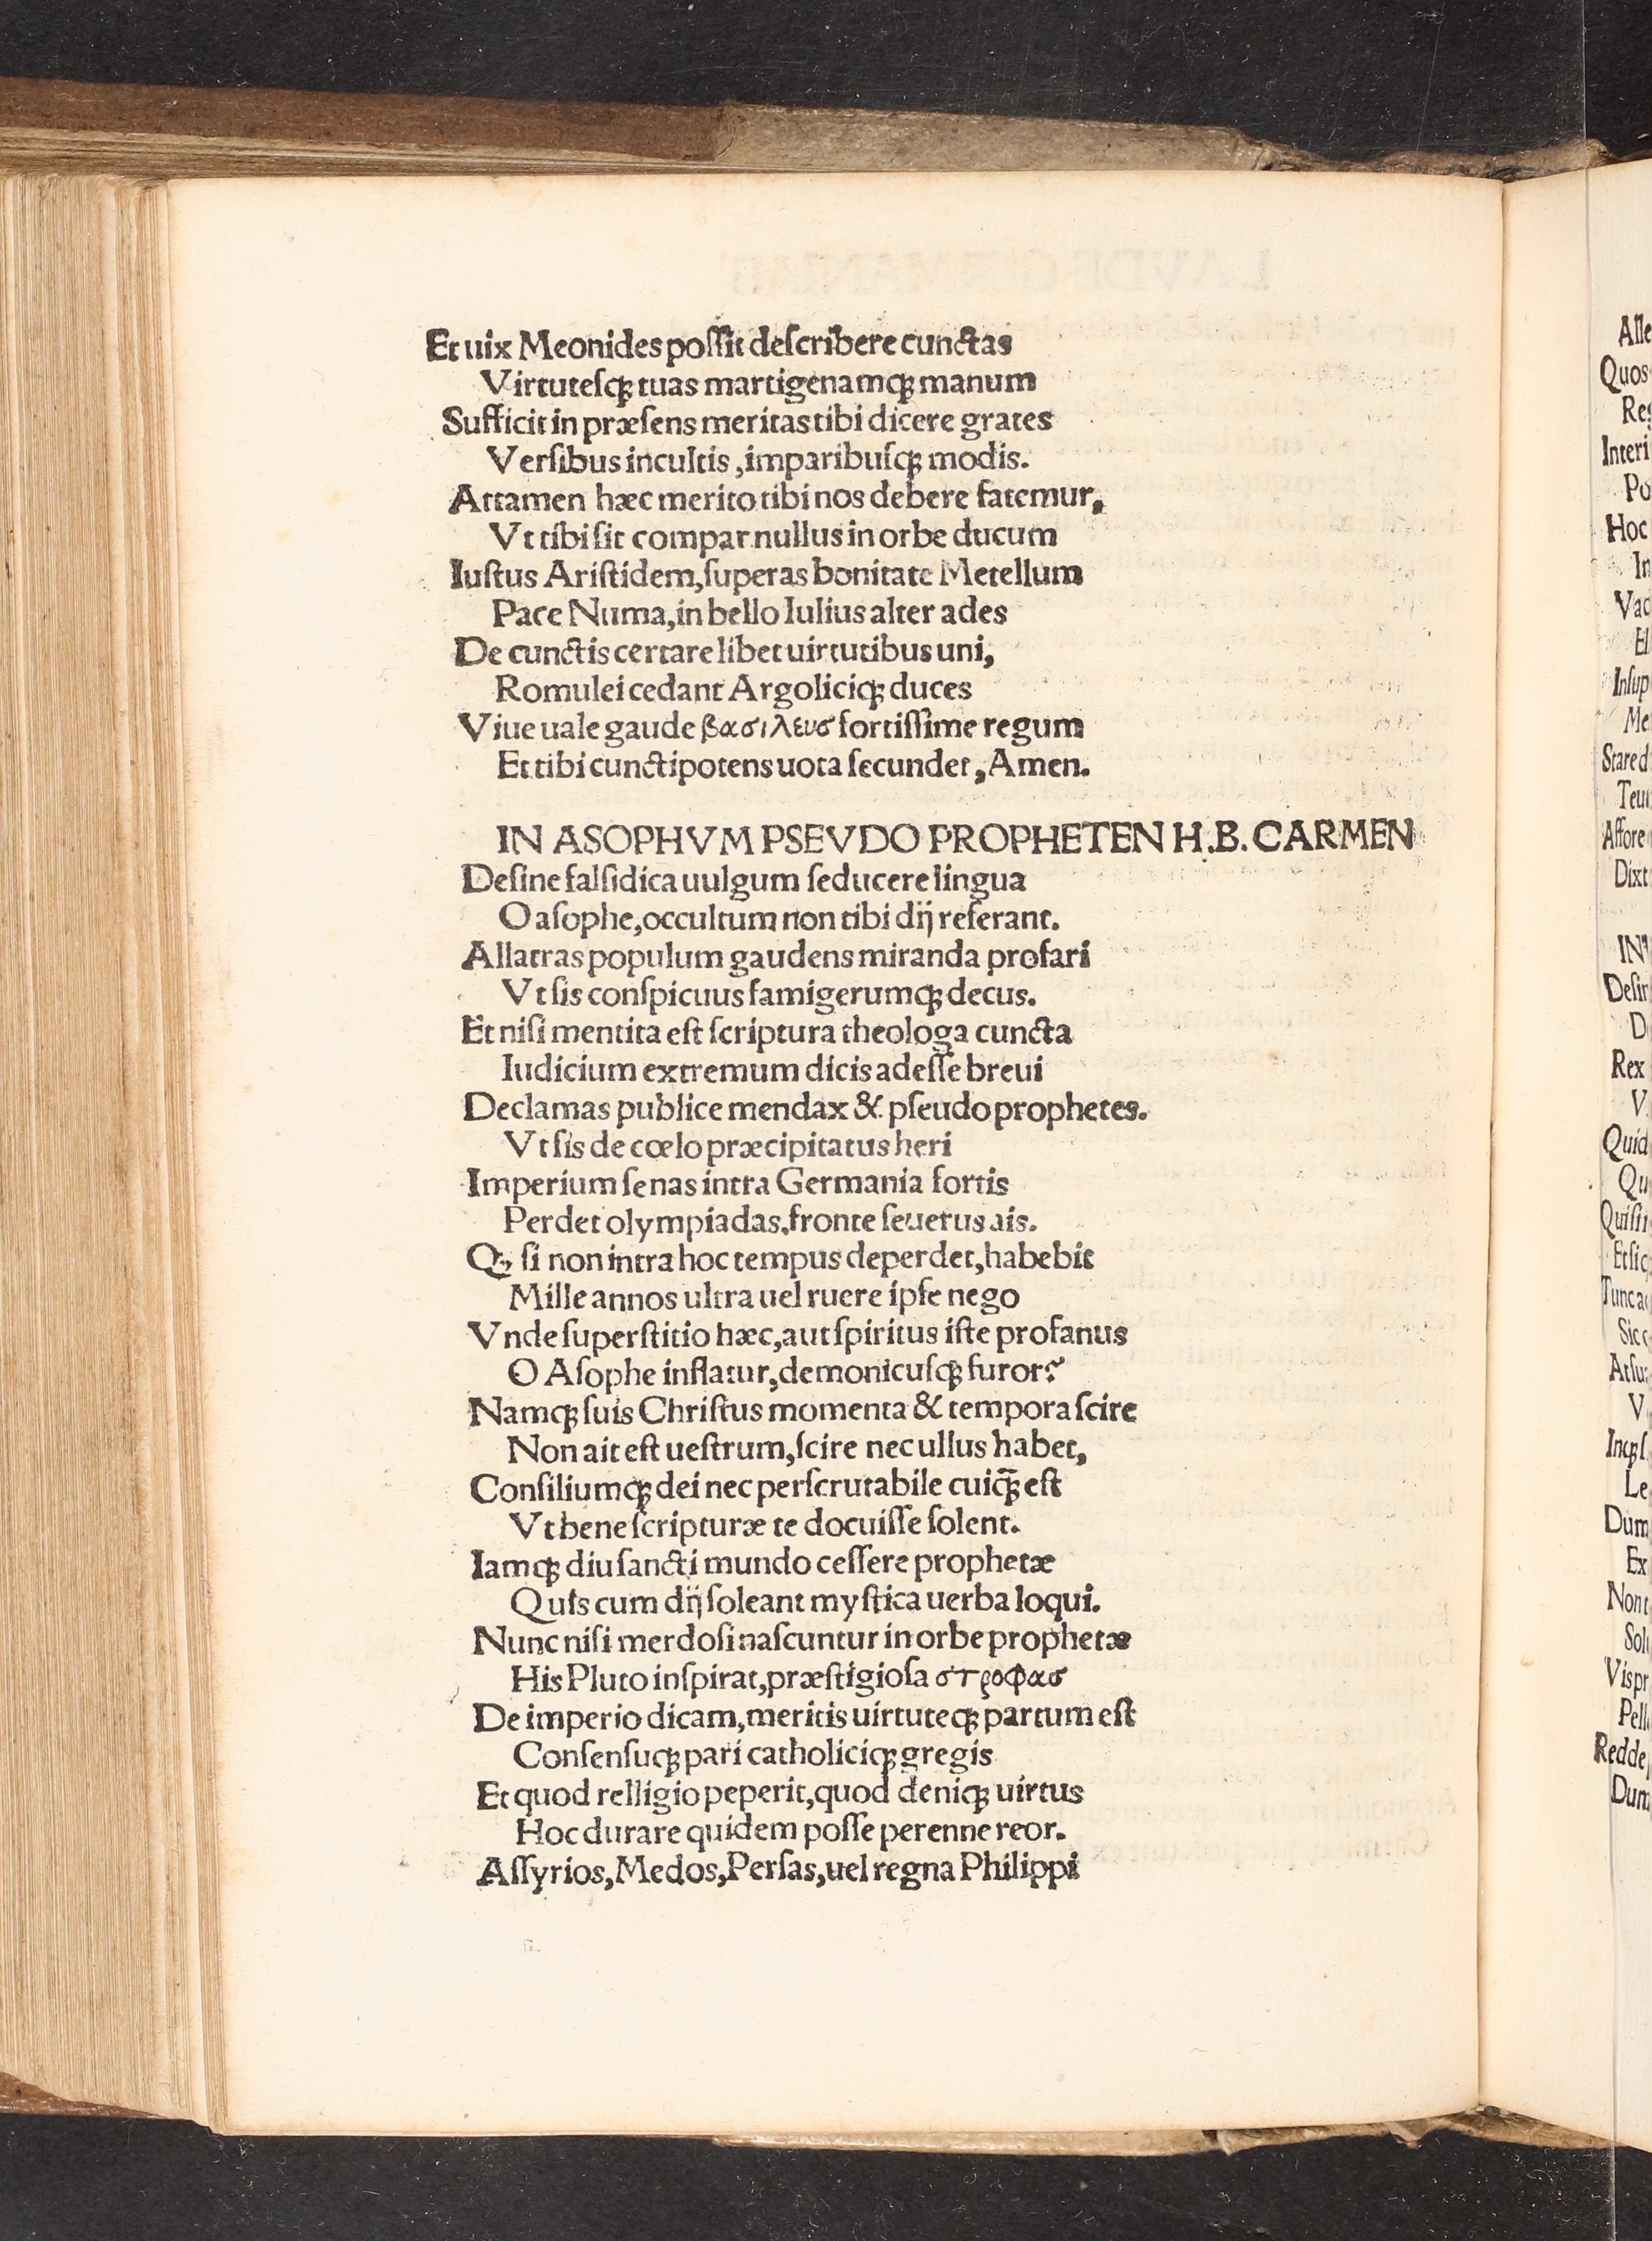 Et uix Meonides poſſit deſcribere cunctas
Virtuteſqꝫ tuas martigenamqꝫ manum
Sufficit in præſens meritas tibi dicere grates
Verſibus incultis, imparibuſqꝫ modis.
Attamen hæc merito tibi nos debere fatemur,
Vt tibi ſit compar nullus in orbe ducum
Iuſtus Ariſtidem, ſuperas bonitate Metellum
Pace Numa, in bello Iulius alter ades
De cunctis certare libet uirtutibus uni,
Romulei cedant Argoliciqꝫ duces
Viue uale gaude βασιλευσ fortiſſime regum
Et tibi cunctipotens uota ſecundet, Amen.
IN ASOPHVM PSEVDO PROPHETEN H.B. CARMEN
Deſine falſidica uulgum ſeducere lingua
O aſophe, occultum non tibi dij referant.
Allatras populum gaudens miranda profari
Vt ſis conſpicuus famigerumqꝫ decus.
Et niſi mentita eſt ſcriptura theologa cuncta
Iudicium extremum dicis adeſſe breui
Declamas publice mendax & pſeudo prophetes.
Vt ſis de cœlo præcipitatus heri
Imperium ſenas intra Germania fortis
Perdet olympiadas, fronte ſeuerus ais.
Qꝫ ſi non intra hoc tempus deperdet, habebit
Mille annos ultra uel ruere ipſe nego
Vnde ſuperſtitio hæc, aut ſpiritus iſte profanus
O Aſophe inflatur, demonicuſqꝫ furor?
Namqꝫ ſuis Chriſtus momenta & tempora ſcire
Non ait eſt ueſtrum, ſcire nec ullus habet,
Conſiliumqꝫ dei nec perſcrutabile cuiqꝫ̃ eſt
Vt bene ſcripturæ te docuiſſe ſolent.
Iamqꝫ diu ſancti mundo ceſſere prophetæ
Quis cum dij ſoleant myſtica uerba loqui.
Nunc niſi merdoſi naſcuntur in orbe prophetæ
His Pluto inſpirat, præſtigioſa στροφασ
De imperio dicam, meritis uirtuteqꝫ partum eſt
Conſenſuqꝫ pari catholiciqꝫ gregis
Et quod relligio peperit, quod deniqꝫ uirtus
Hoc durare quidem poſſe perenne reor.
Aſſyrios, Medos, Perſas, uel regna Philippi